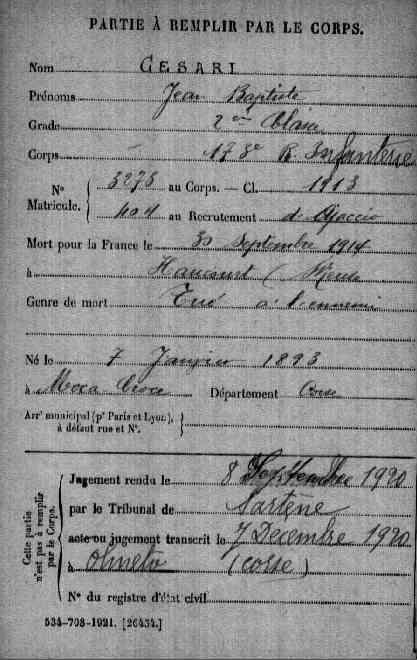 PARTIE À REMPLIR PAR LE CORPS.
Nom CESARI
Prénoms Jean Baptiste
Grade 2ème Classe
Corps 173e R. Infanterie
N° Matricule. 3273 au Corps. — Cl. 1913
404 au Recrutement d'Ajaccio
Mort pour la France le 30 Septembre 1914
à Haucourt (Meuse
Genre de mort Tué à l'ennemi
Né le 7 Janvier 1893
à Moca Croce Département Corse
Arr' municipal (p' Paris et Lyon),
à défaut rue et N°.
Cette partie n'est pas à remplir par le Corps.
Jugement rendu le 8 Septembre 1920
par le Tribunal de Sartène
acte ou jugement transcrit le 7 Décembre 1920
à Olmeto (Corse)
N° du registre d'état civil
534-708-1921. [26434.]